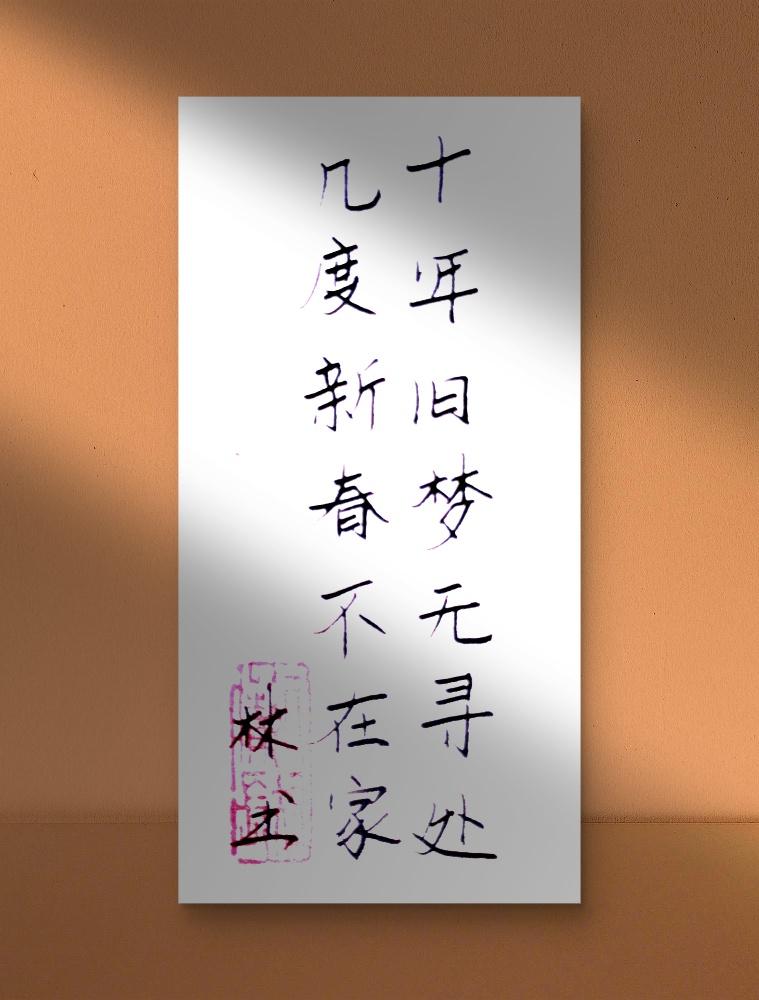 十年旧梦无寻处
几度新春不在家
林